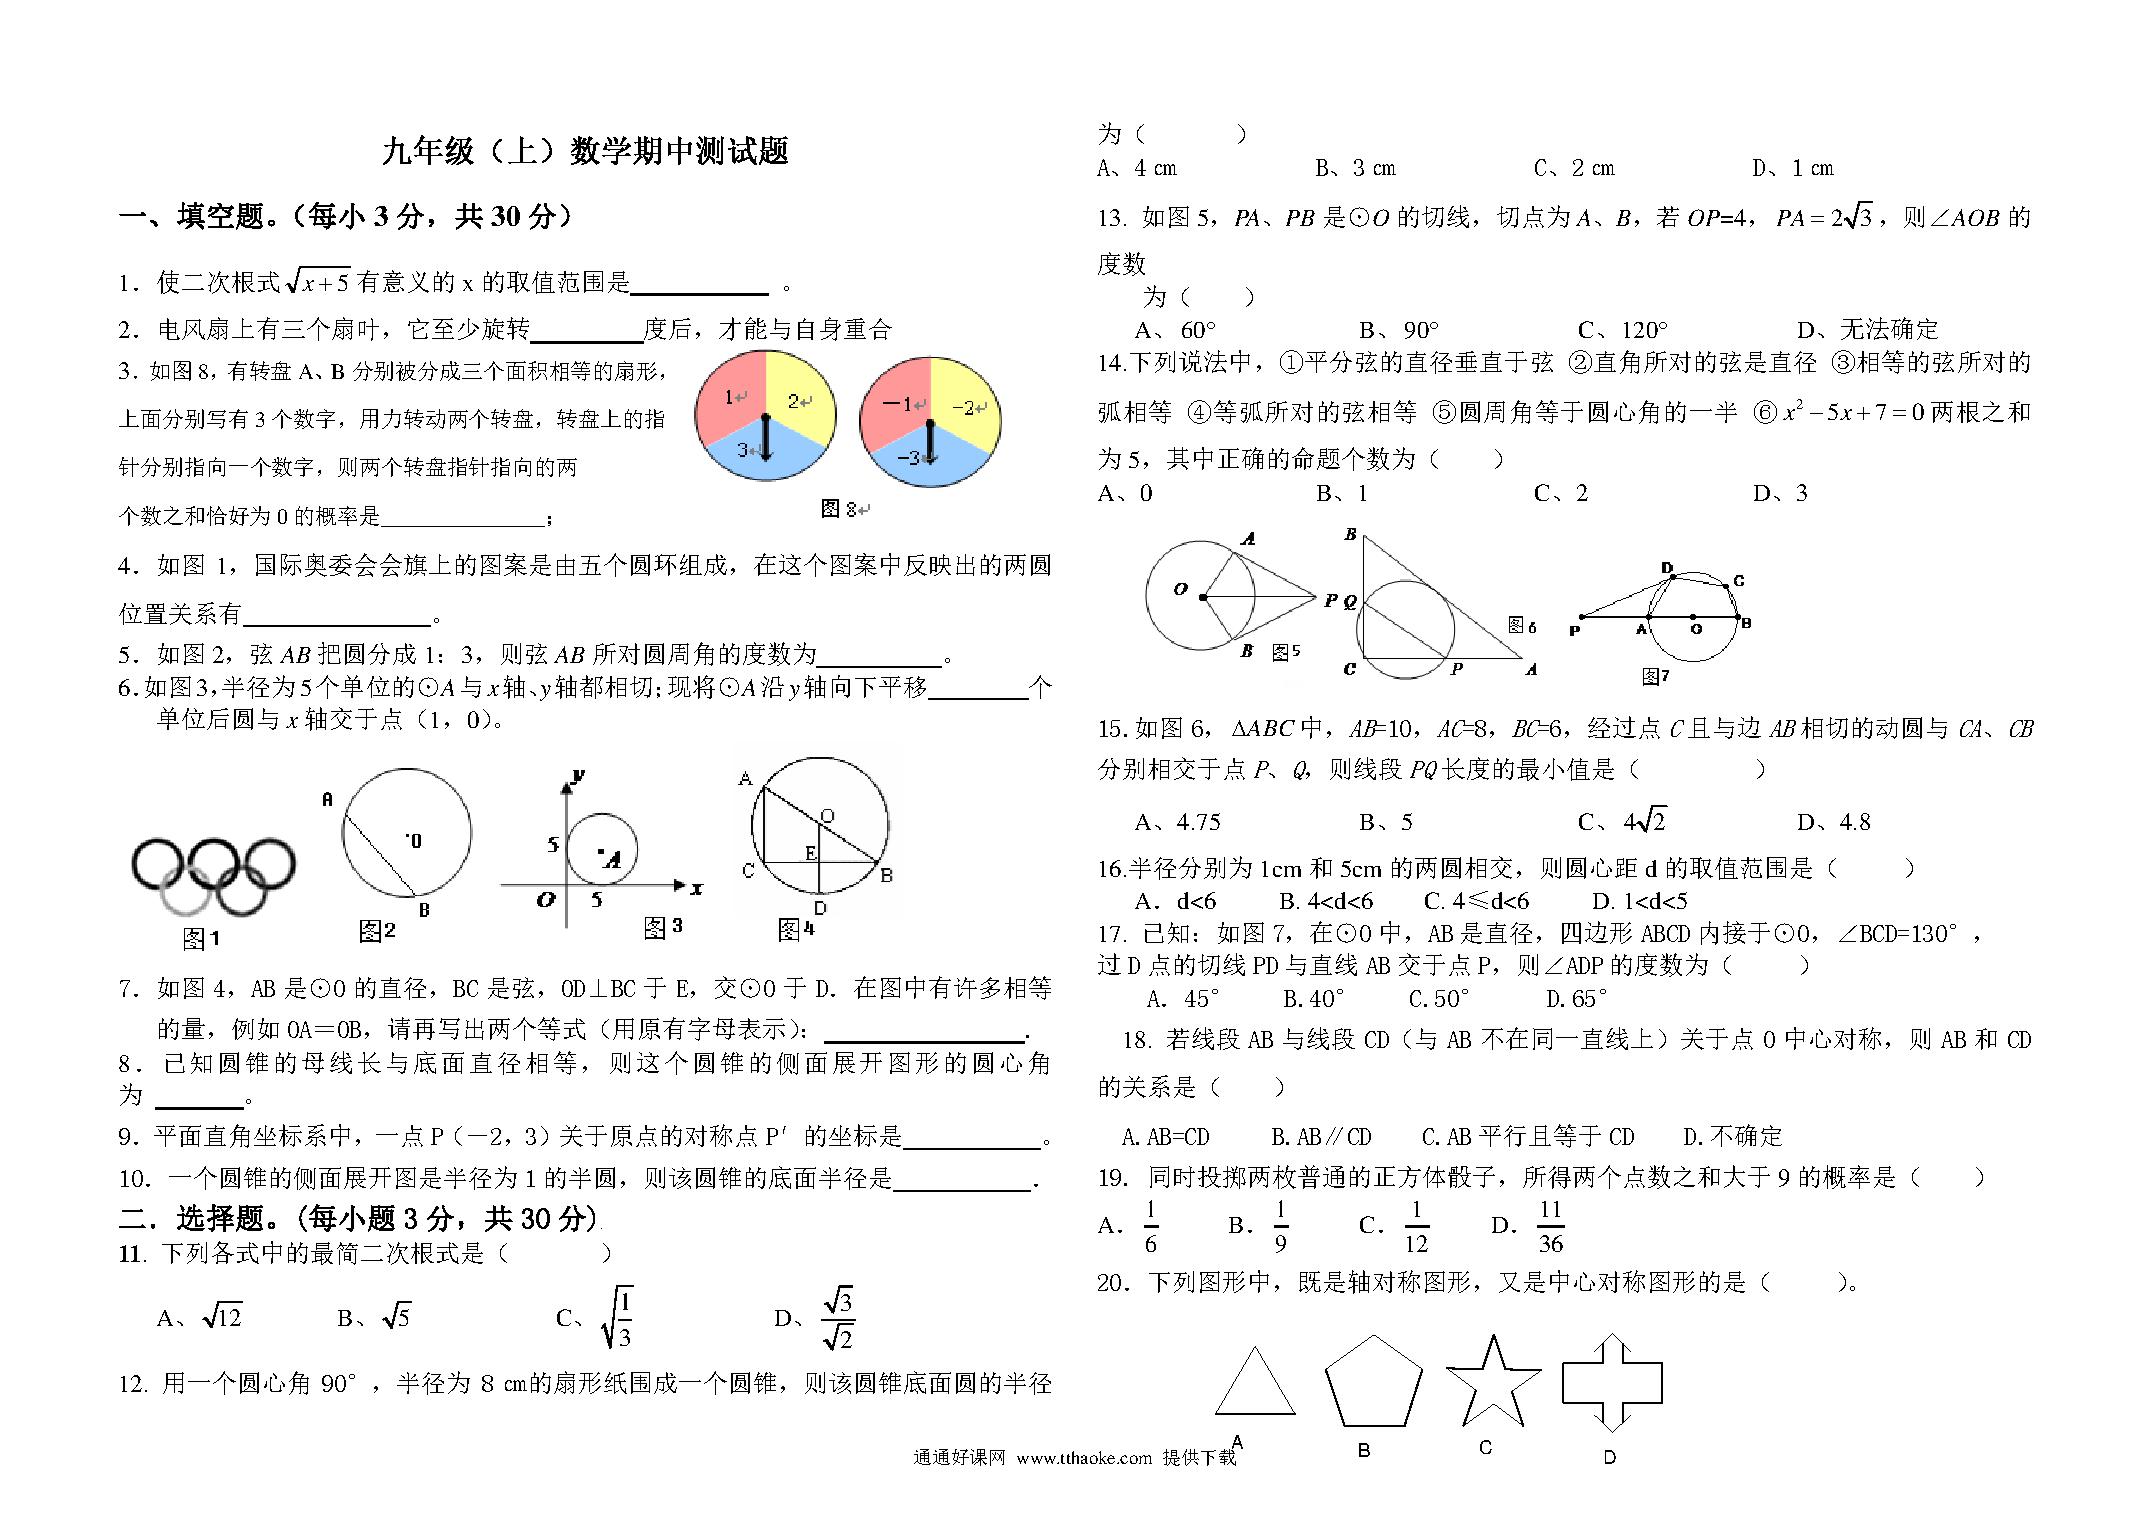 九年级（上）数学期中测试题
一、填空题。（每小 3 分，共 30 分）
1．使二次根式 √(x+5) 有意义的 x 的取值范围是___________ 。
2．电风扇上有三个扇叶，它至少旋转_________度后，才能与自身重合
3．如图 8，有转盘 A、B 分别被分成三个面积相等的扇形，
上面分别写有 3 个数字，用力转动两个转盘，转盘上的指
针分别指向一个数字，则两个转盘指针指向的两
个数之和恰好为 0 的概率是_______________；
1↵ 2↵ 3↵
—1↵ -2↵ -3↵
图 8↵
4．如图 1，国际奥委会会旗上的图案是由五个圆环组成，在这个图案中反映出的两圆
位置关系有_______________。
5．如图 2，弦 AB 把圆分成 1：3，则弦 AB 所对圆周角的度数为__________。
6.如图3,半径为5个单位的⊙A与x轴、y轴都相切;现将⊙A沿y轴向下平移________个
单位后圆与 x 轴交于点（1，0）。
A ·O B 图2
y 5 ·A O 5 x 图 3
A O E C B D 图4
图1
7．如图 4，AB 是⊙O 的直径，BC 是弦，OD⊥BC 于 E，交⊙O 于 D．在图中有许多相等
的量，例如 OA＝OB，请再写出两个等式（用原有字母表示）：________________．
8．已知圆锥的母线长与底面直径相等，则这个圆锥的侧面展开图形的圆心角
为 _______。
9．平面直角坐标系中，一点 P（—2，3）关于原点的对称点 P′ 的坐标是___________。
10．一个圆锥的侧面展开图是半径为 1 的半圆，则该圆锥的底面半径是___________．
二．选择题。(每小题 3 分，共 30 分)
11. 下列各式中的最简二次根式是（ ）
A、√12 B、√5 C、√(1/3) D、√3/√2
12. 用一个圆心角 90°，半径为 8 ㎝的扇形纸围成一个圆锥，则该圆锥底面圆的半径
为（ ）
A、4 ㎝ B、3 ㎝ C、2 ㎝ D、1 ㎝
13. 如图 5，PA、PB 是⊙O 的切线，切点为 A、B，若 OP=4， PA = 2√3 ，则∠AOB 的
度数
为（ ）
A、60° B、90° C、120° D、无法确定
14.下列说法中，①平分弦的直径垂直于弦 ②直角所对的弦是直径 ③相等的弦所对的
弧相等 ④等弧所对的弦相等 ⑤圆周角等于圆心角的一半 ⑥ x² − 5x + 7 = 0 两根之和
为 5，其中正确的命题个数为（ ）
A、0 B、1 C、2 D、3
A O P B 图5
B Q C P A 图6
D C P A O B 图7
15.如图 6，ΔABC 中，AB=10，AC=8，BC=6，经过点 C 且与边 AB 相切的动圆与 CA、CB
分别相交于点 P、Q，则线段 PQ 长度的最小值是（ ）
A、4.75 B、5 C、4√2 D、4.8
16.半径分别为 1cm 和 5cm 的两圆相交，则圆心距 d 的取值范围是（ ）
A．d<6 B. 4<d<6 C. 4≤d<6 D. 1<d<5
17. 已知：如图 7，在⊙O 中，AB 是直径，四边形 ABCD 内接于⊙O，∠BCD=130°，
过 D 点的切线 PD 与直线 AB 交于点 P，则∠ADP 的度数为（ ）
A．45° B.40° C.50° D.65°
18. 若线段 AB 与线段 CD（与 AB 不在同一直线上）关于点 O 中心对称，则 AB 和 CD
的关系是（ ）
A.AB=CD B.AB∥CD C.AB 平行且等于 CD D.不确定
19．同时投掷两枚普通的正方体骰子，所得两个点数之和大于 9 的概率是（ ）
A．1/6 B．1/9 C．1/12 D．11/36
20．下列图形中，既是轴对称图形，又是中心对称图形的是（ ）。
A B C D
通通好课网 www.tthaoke.com 提供下载